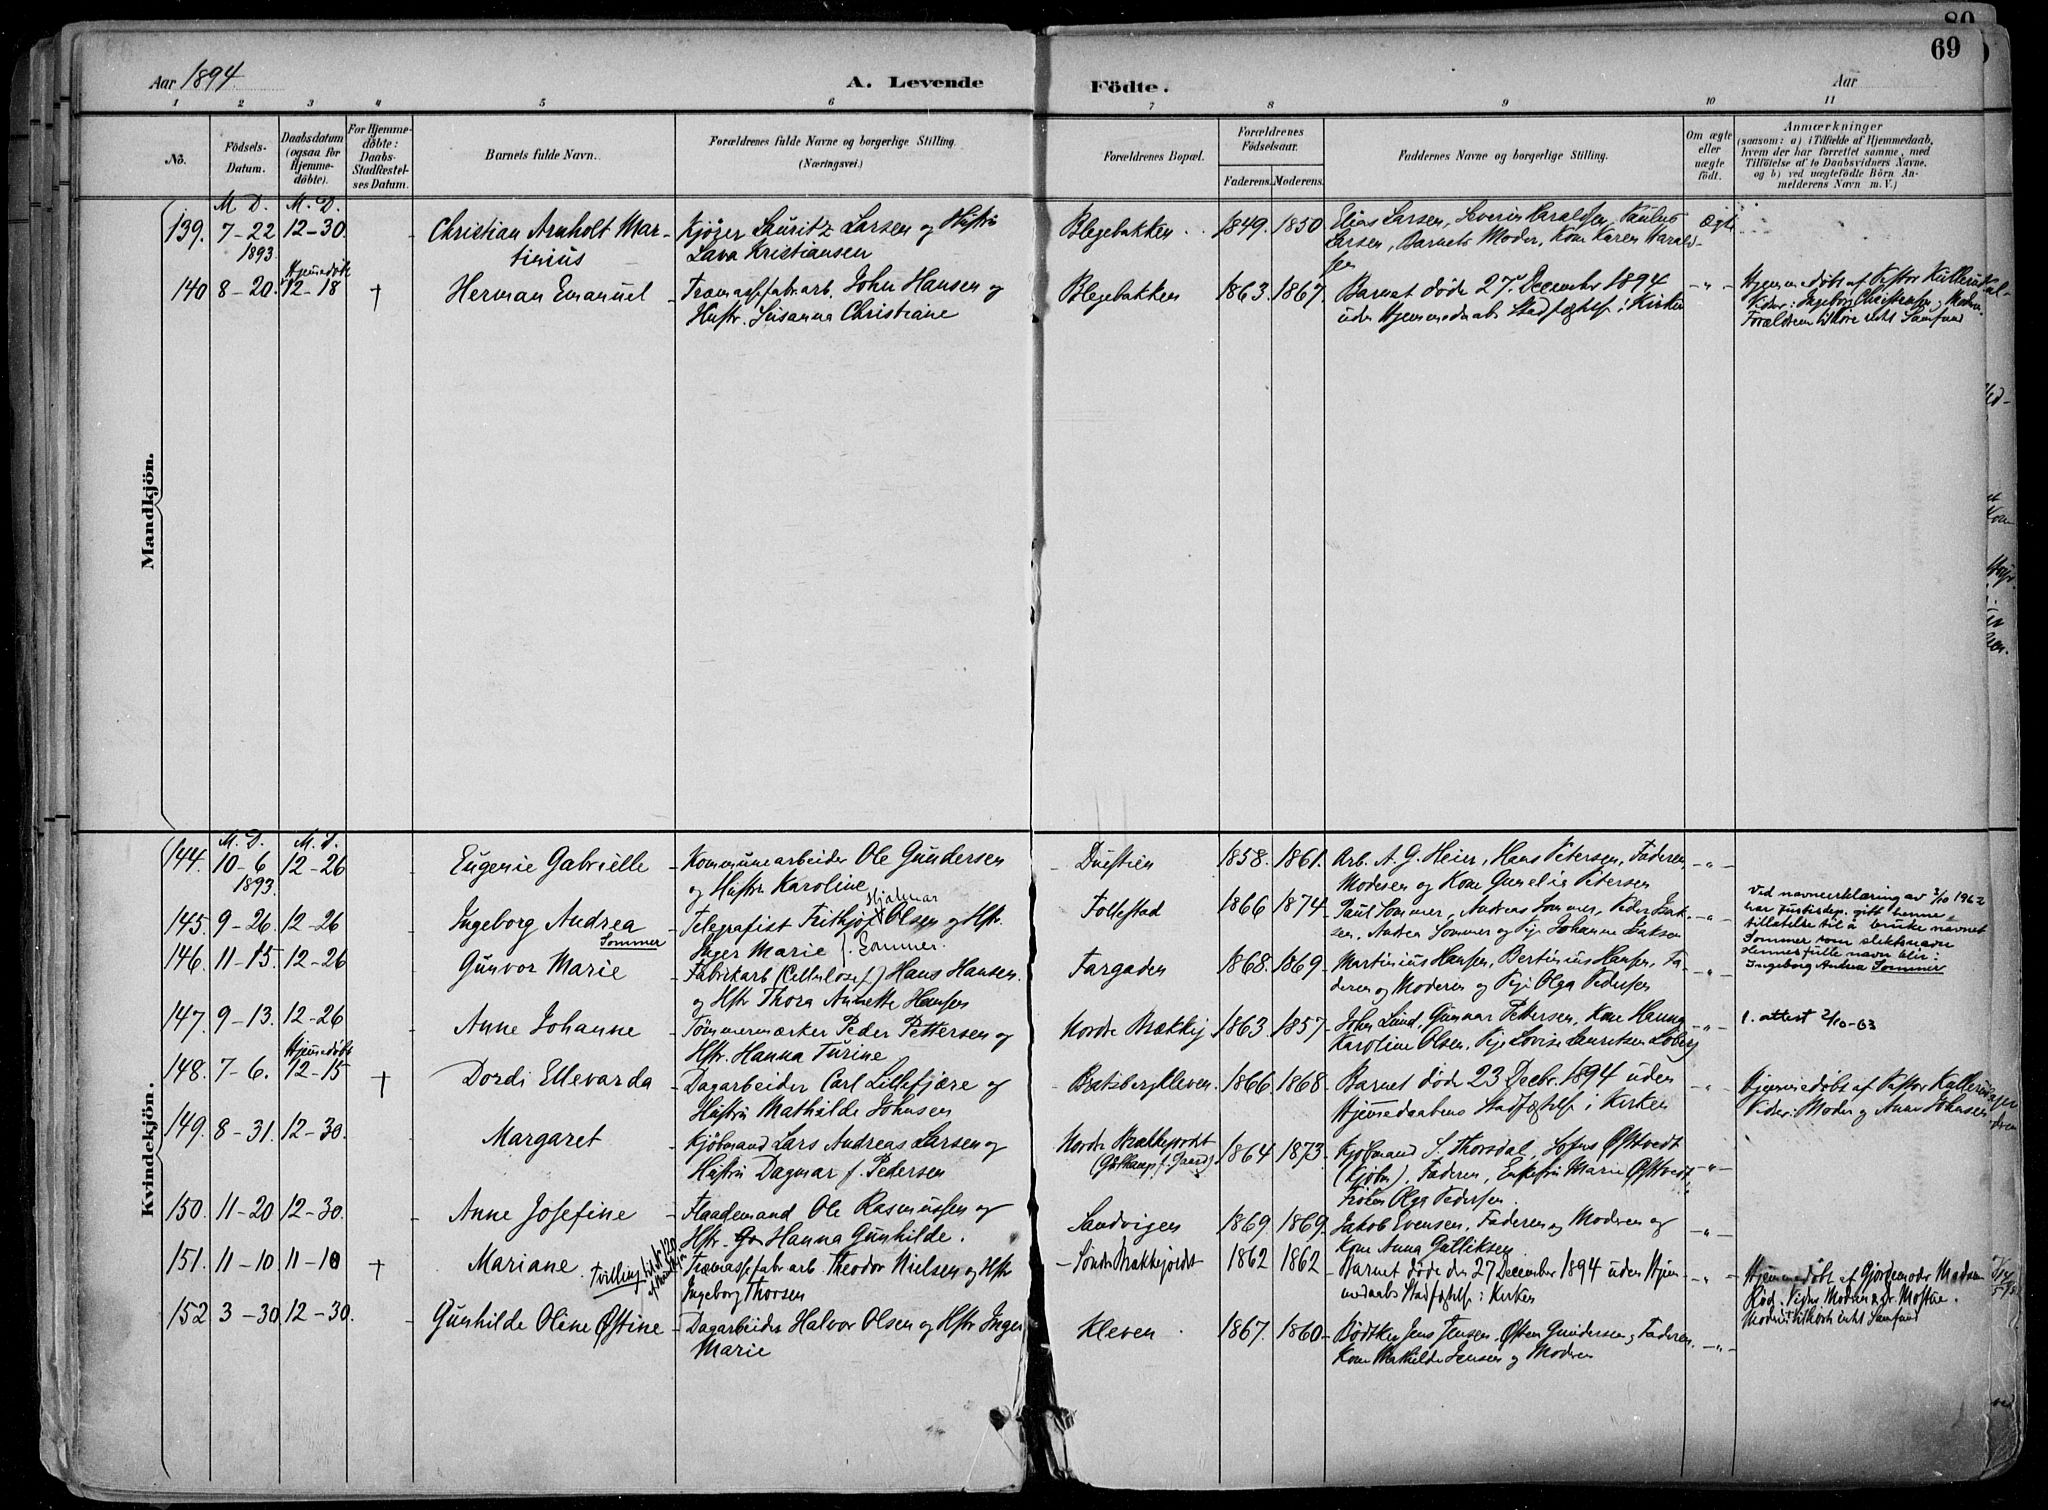 80
69
Aar 1894.
A. Levende
Födte.
Aar
1 2 3 4 5 6 7 8 9 10 11
No.
Födsels-Datum.
Daabsdatum (ogsaa for Hjemmedøbte).
For Hjemmedöbte: Daabs-Stadfæstelses Datum.
Barnets fulde Navn.
Forældrenes fulde Navne og borgerlige Stilling.
(Næringsvei.)
Forældrenes Bopæl.
Forældrenes Födselsaar.
Faderens. Moderens.
Faddernes Navne og borgerlige Stilling.
Om ægte eller uægte födt.
Anmærkninger
(saasom: a) i Tilfælde af Hjemmedaab, hvem der har forrettet samme, med Tilföielse af to Daabsvidners Navne, og b) ved uægtefödte Börn Anmelderens Navn m. V.)
Mandkjön.
M. D. M. D.
139. 7-22 1893 12-30. Christian Arnholt Martinius
Kjøger Lauritz Larsen og Hustru Lava Kristiansen
Blegebakken. 1849. 1850
Elias Larsen, Severin Haraldsen, Paulus Larsen, Barnets Moder, Kone Karen Haraldsen
Ægte
140 8-20. Hjemmedøbt 12-18 † Herman Emanuel
Træmassefabr.arb. John Hansen og Hustr. Susanna Christiane
Blegebakken 1863. 1867.
Barnet døde 27. December 1894 uden Hjemmedaabs Stadfæstelse i Kirken
-"-
Hjemmedøbt af Pastor
Vidner: Ingeborg Christensen og Moderen.
Kvindekjön.
M. D. M. D.
144. 10-6 1893. 12-26 Eugenie Gabrielle
Kommunearbeider Ole Gundersen og Hustr Karoline
Duestien 1858. 1861.
Arb. A. G. Heier, Hans Petersen, Faderen, Moderen og Kone Gunelia Petersen
-"-
145. 9-26. 12-26 Ingeborg Andrea Sommer
Telegrafist Frithjof Hjalmar Olsen og Hstr. Inger Marie f. Sommer.
Follestad 1866 1874
Paul Sommer, Andreas Sommer, Peder Isaksen, Andrea Sommer og Pige Johanne Isaksen
-"-
Ved navneerklæring av 3/10 1962
har Justisdep. gitt henne
tillatelse til å bruke navnet
Sommer som slektsnavn
Hennes fulle navn blir:
Ingeborg Andrea Sommer
146. 11-15. 12-26 Gunvor Marie
Fabrikarb (Cellulosef.) Hans Hansen. og Hstr Thora Annette Hansen
Fargaden 1868. 1869
Martinius Hansen, Bertinius Hansen, Faderen og Moderen og Pige Olga Pedersen
-"-
147. 9-13. 12-26 Anne Johanne
Tømmermærker Peder Pettersen og Hstr. Hanna Turine
Nordre Brækkej 1863. 1857
John Lund, Gunnar Pettersen, Kone Hanna Karoline Olsen, Pige Lovise Lauretsen Loberg
-"-
1. attest 2/10-63
148. 7-6. Hjemmedøbt 12-15 † Dordi Ellevarda
Dagarbeider Carl Lillefjære og Hustru Mathilde Johnsen
Bratsbergkleven. 1866. 1868
Barnet døde 23 Decbr. 1894 uden Hjemmedaabens Stadfæstelse i Kirken
-"-
Hjemmedøbt af Pastor
Vidner: Moder og Anne Johnsen
149. 8-31. 12-30. Margaret
Kjøbmand Lars Andreas Larsen og Hustru Dagmar f. Pedersen
Nordre Brækkejordet 1864 1873.
Kjøbmand S. Thorsdal, Sofus Østvedt (Kjøbm.), Faderen, Enkefru Marie Østvedt, Frøken Olga Pedersen.
-"-
150. 11-20 12-30. Anne Josefine
Flaademand Ole Rasmussen og Hstr. Hanna Gunhilde.
Sandvigen 1869 1869.
Jakob Evensen, Faderen og Moderen og Kone Anna Gulliksen
-"-
151. 11-10 11-10 † Mariane. Tvilling til No 120 af Mandkjøn
Træmassefabr arb. Theodor Nielsen og Hstr Ingeborg Thorsen
Søndr Brækkejordet 1862 1862
Barnet døde den 27 December 1894 uden Hjemmedaabs Stadfæstelse i Kirken
-"-
Hjemmedøbt af Gjordemoder Madam
152 3-30 12-30. Gunhilde Oline Østine
Dagarbeider Halvor Olsen og Hstr Inger Marie
Kleven. 1867. 1860
Bødtker Jens Jensen, Østen Gundersen og Faderen. Kone Mathilde Jensen og Moderen
-"-